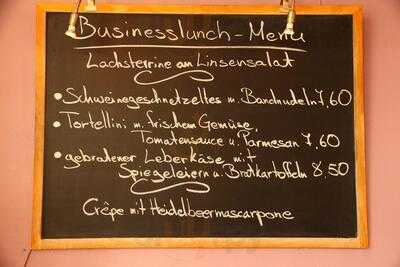 Businesslunch-Menu
Lachsterrine an Linsensalat
• Schweinegeschnetzeltes m. Bandnudeln 7,60
• Tortellini m. frischem Gemüse,
Tomatensauce u. Parmesan 7,60
• gebratener Leberkäse mit
Spiegeleiern u. Bratkartoffeln 8,50
Crêpe mit Heidelbeermascarpone